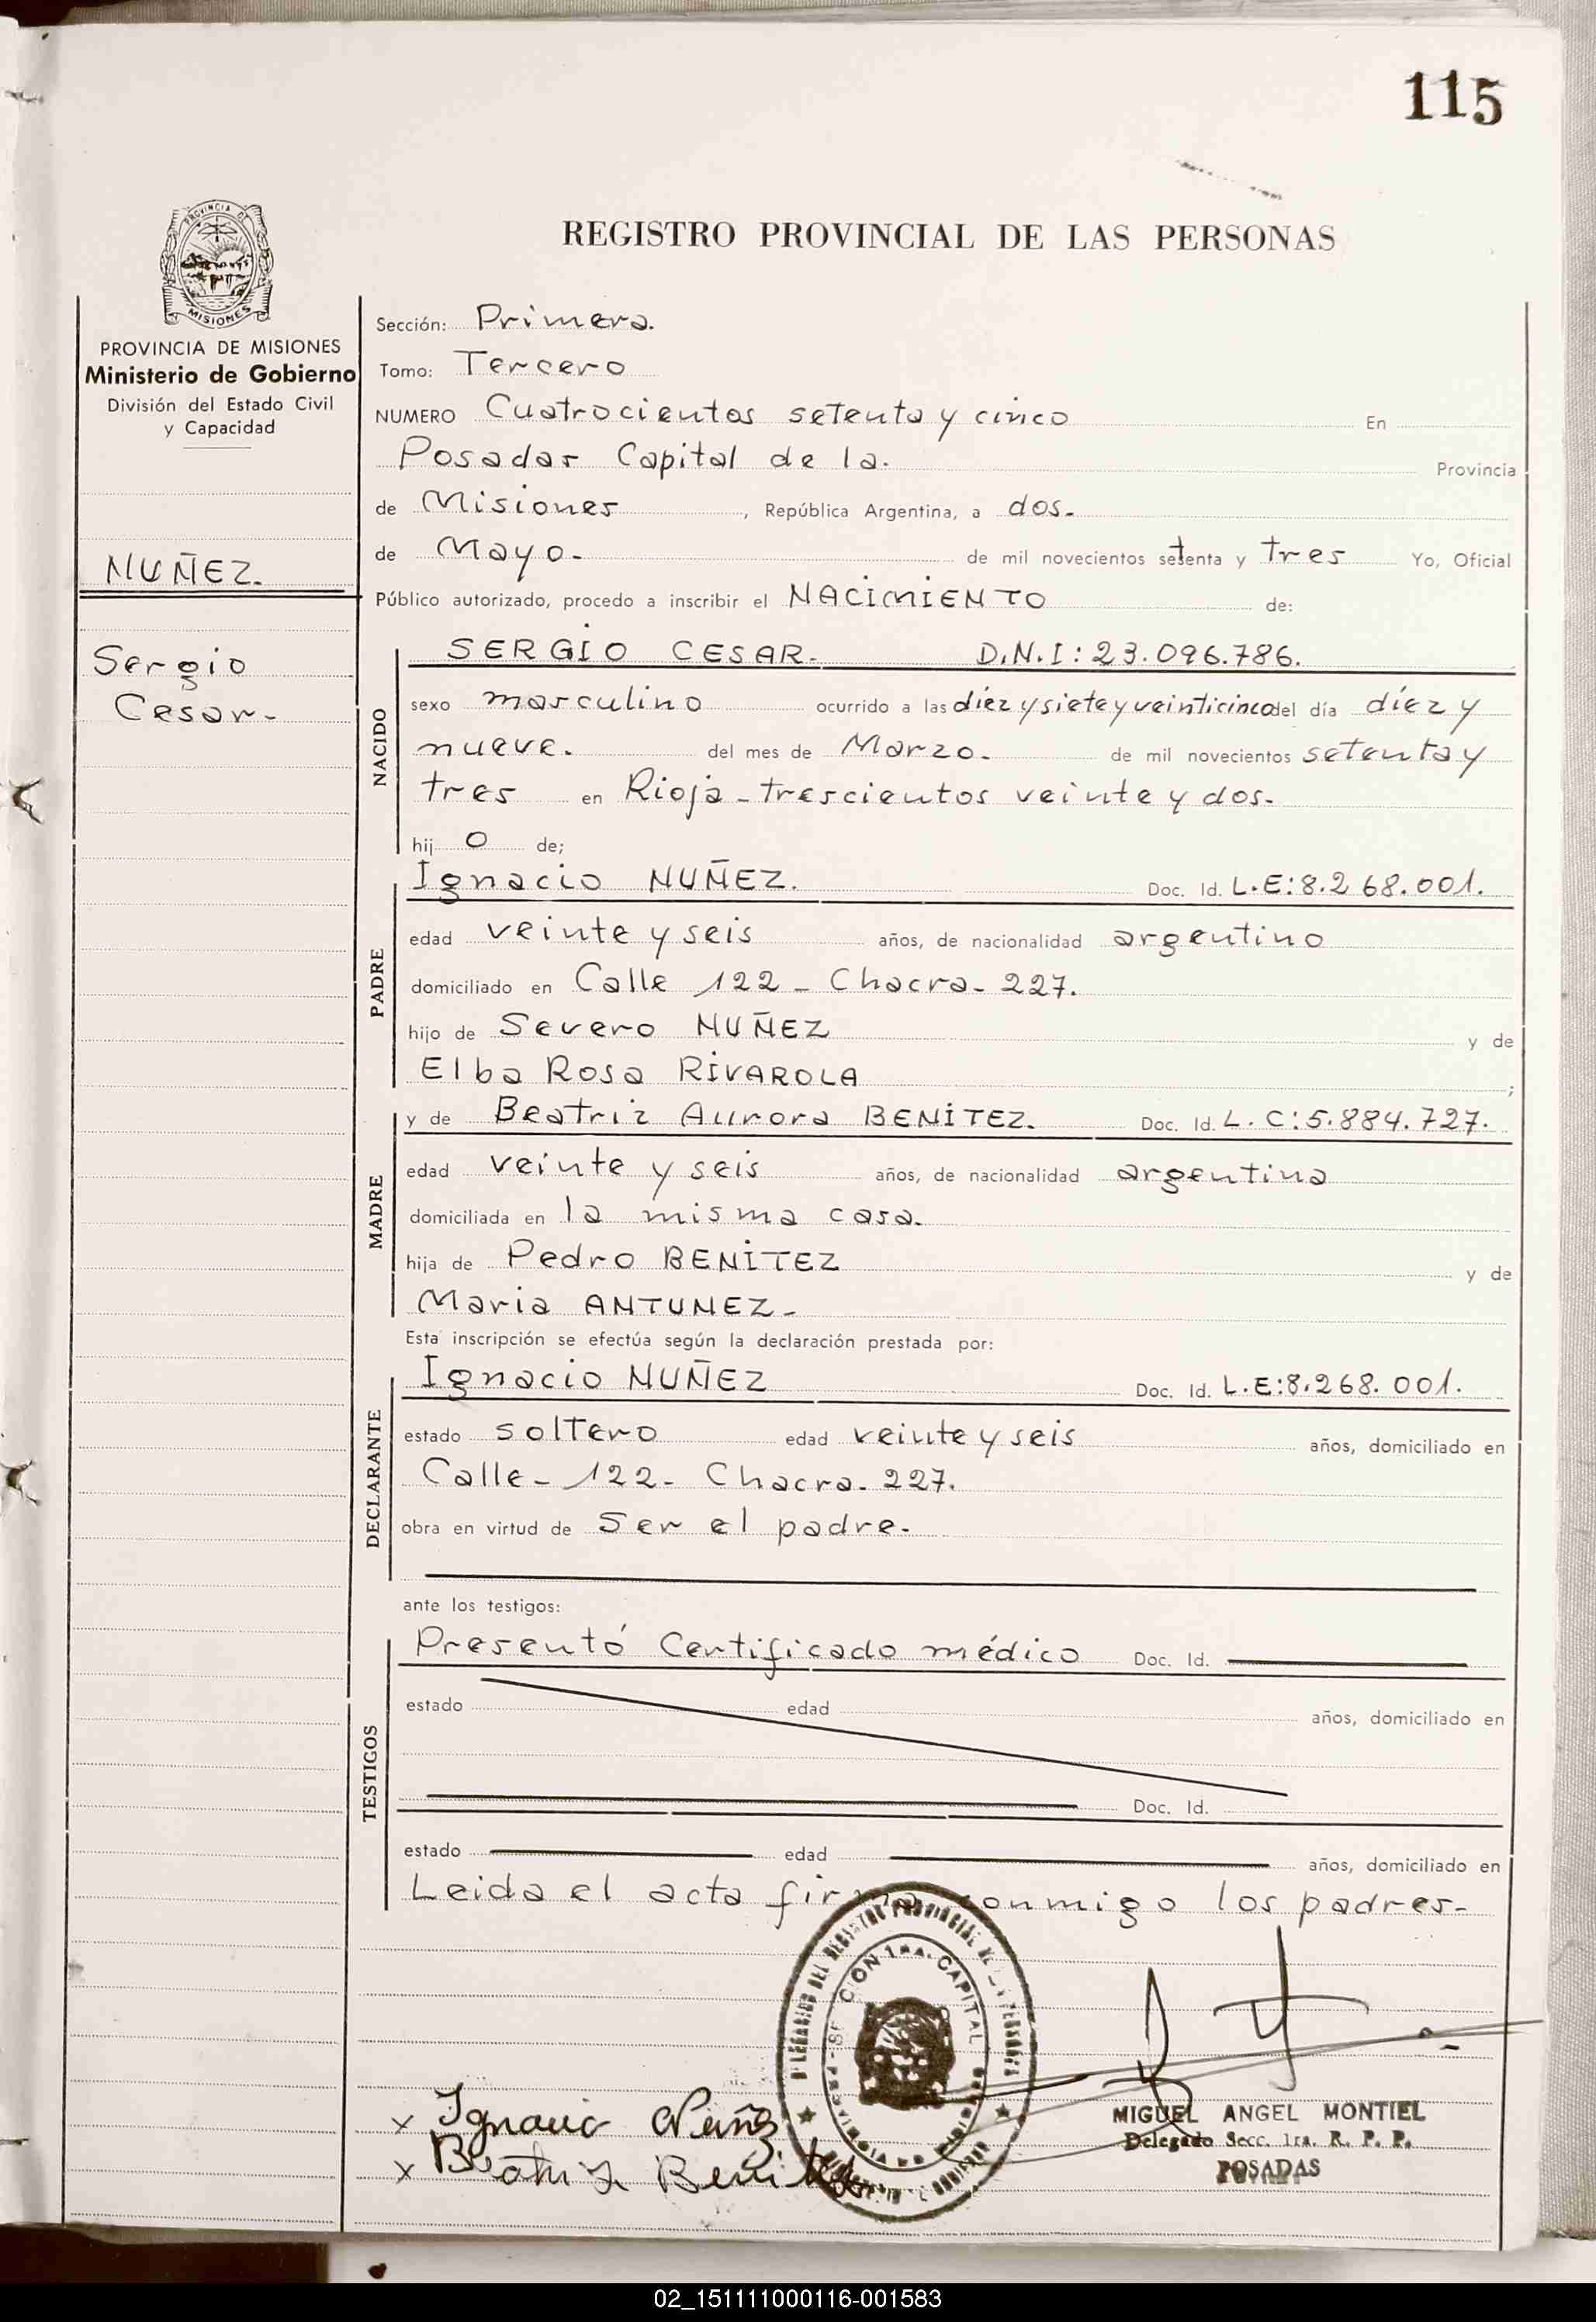 115
PROVINCIA DE
MISIONES
REGISTRO PROVINCIAL DE LAS PERSONAS
PROVINCIA DE MISIONES
Ministerio de Gobierno
División del Estado Civil
y Capacidad
NUÑEZ.
Sergio
Cesar.-
Sección: Primera.
Tomo: Tercero
NUMERO Cuatrocientos setenta y cinco En
Posadas Capital de la. Provincia
de Misiones, República Argentina, a dos.-
de Mayo.- de mil novecientos setenta y tres Yo, Oficial
Público autorizado, procedo a inscribir el NACIMIENTO de:
NACIDO
SERGIO CESAR.- D.N.I: 23.096.786.
sexo masculino ocurrido a las diez y siete y veinticinco del día diez y
nueve. del mes de Marzo.- de mil novecientos setenta y
tres en Rioja - trescientos veinte y dos.-
hij o de;
PADRE
Ignacio NUÑEZ. Doc. Id. L.E: 8.268.001.
edad veinte y seis años, de nacionalidad argentino
domiciliado en Calle 122 - Chacra - 227.
hijo de Severo NUÑEZ y de
Elba Rosa RIVAROLA ;
MADRE
y de Beatriz Aurora BENITEZ. Doc. Id. L.C: 5.884.727.-
edad veinte y seis años, de nacionalidad argentina
domiciliada en la misma casa.
hija de Pedro BENITEZ y de
Maria ANTUNEZ.-
Esta inscripción se efectúa según la declaración prestada por:
DECLARANTE
Ignacio NUÑEZ Doc. Id. L.E: 8.268.001.
estado soltero edad veinte y seis años, domiciliado en
Calle - 122 - Chacra - 227.
obra en virtud de Ser el padre.-
ante los testigos:
TESTIGOS
Presentó Certificado médico Doc. Id.
estado edad años, domiciliado en
Doc. Id.
estado edad años, domiciliado en
Leida el acta firma conmigo los padres.-
CAPITAL
x Ignacio Nuñez
x Beatriz Benitez
MIGUEL ANGEL MONTIEL
Delegado Secc. 1ra. R. P. P.
POSADAS
02_151111000116-001583